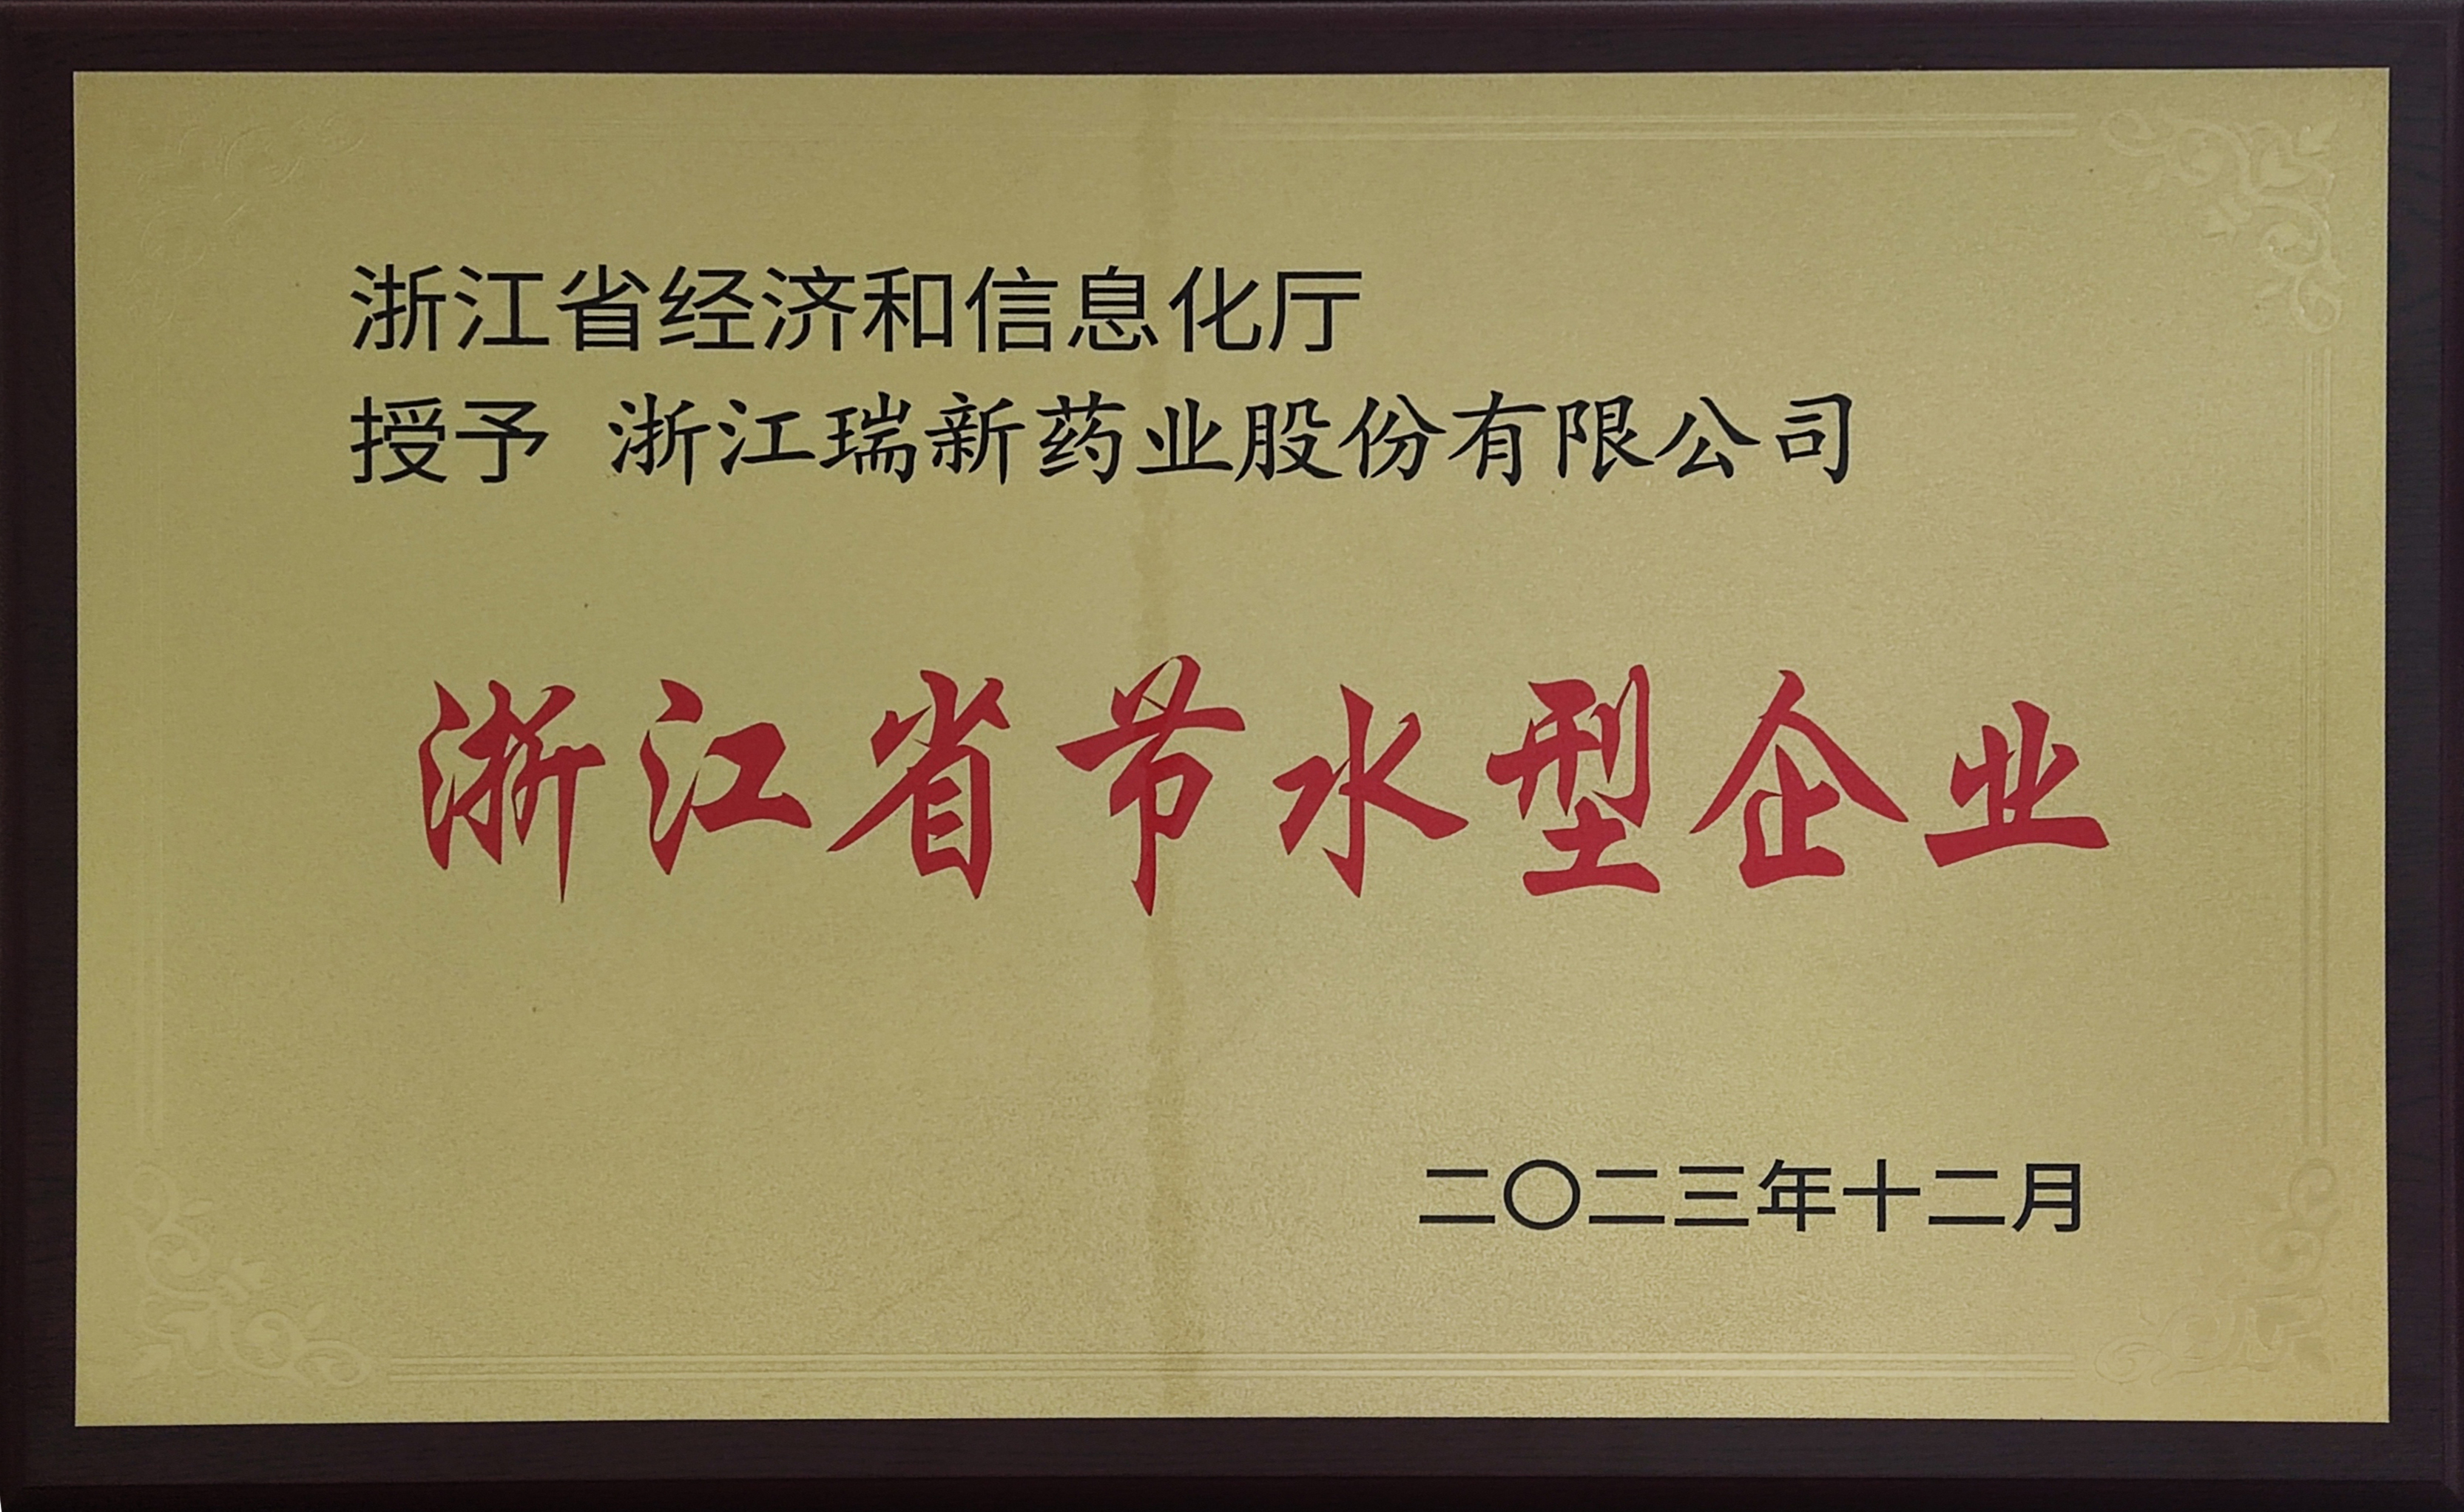 浙江省经济和信息化厅
授予 浙江瑞新药业股份有限公司
浙江省节水型企业
二〇二三年十二月